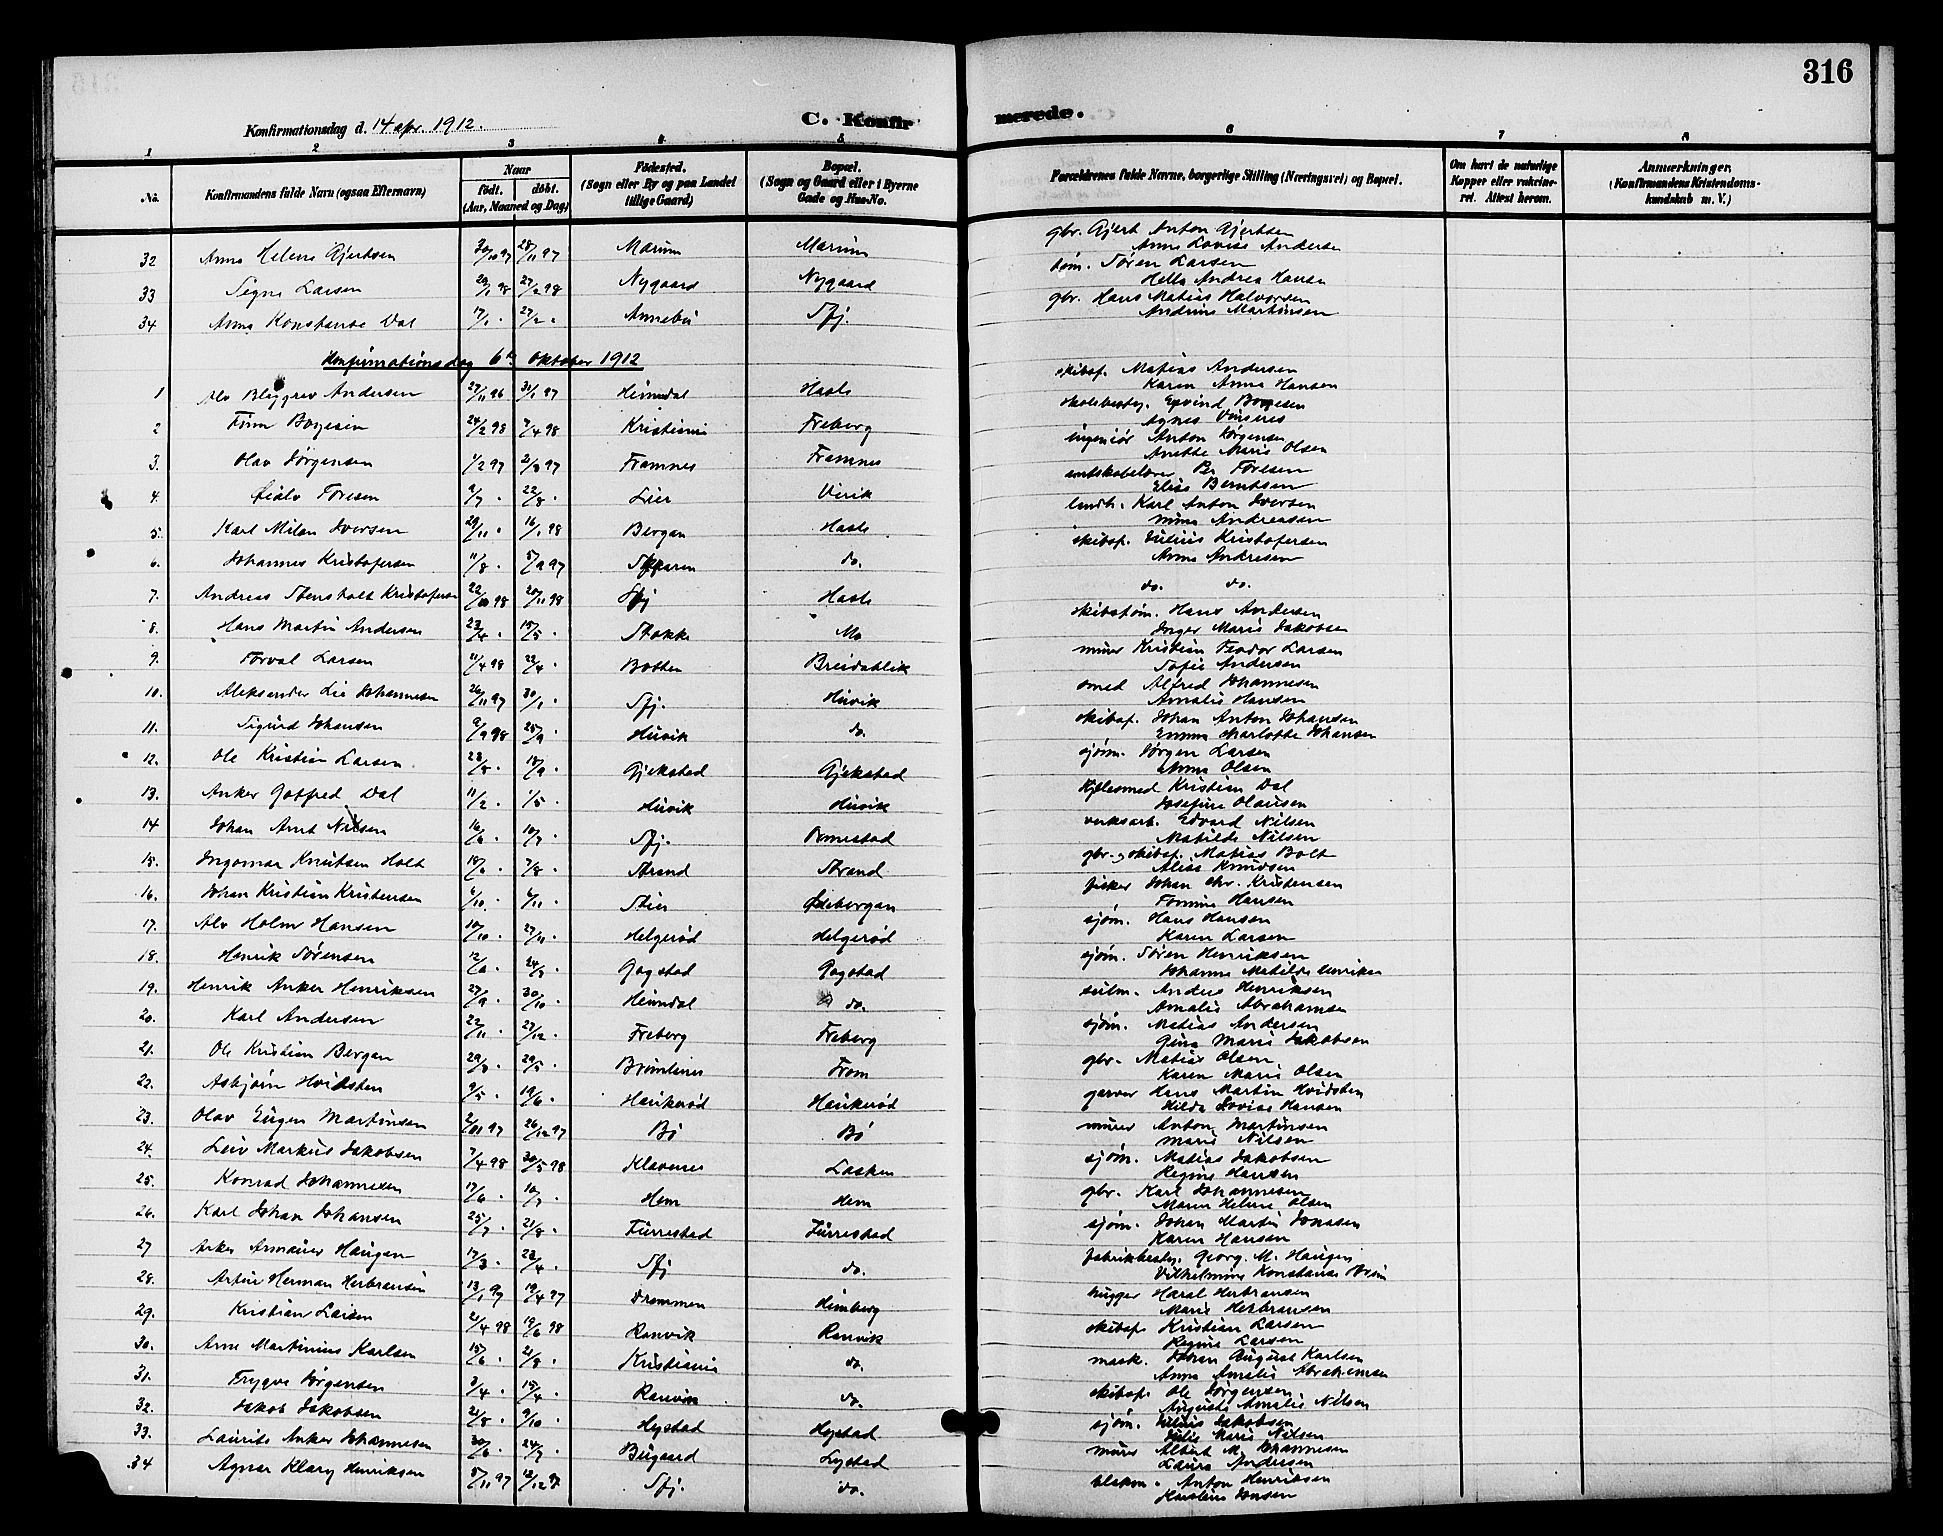 316
Konfirmationsdag d. 14 apr. 1912.
C. Konfirmerede.
1 2 3 4 5 6 7 8
No. Konfirmandens fulde Navn (ogsaa Efternavn) Naar födt. döbt. (Aar, Maaned og Dag) Födested. (Sogn eller By og paa Landet tillige Gaard) Bopæl. (Sogn og Gaard eller i Byerne Gade og Hus-No. Forældrenes fulde Navne, borgerlige Stilling (Næringsvei) og Bopæl. Om havt de naturlige Kopper eller vakcineret. Attest herom. Anmærkninger, (Konfirmandens Kristendomskundskab m. V.)
32 Anna Helene Gjertsen 30/10 97 28/11 97 Marum Marum gbr. Gjert Anton Gjertsen
Anne Lovise Andersen
33 Signe Larsen 29/1 98 27/2 98 Nygaard Nygaard tøm. Søren Larsen
Hella Andrea Hansen
34 Anna Konstanse Dal 17/1 . 27/2 . Annebu Sfj. gbr. Hans Matias Halvorsen
Andrine Martinsen
Konfirmationsdag 6te Oktober 1912
1 Alv Andersen 27/11 96 31/1 97 Heimdal Hasle skibsf. Matias Andersen
Karen Anna Hansen
2 Finn Børjesen 24/2 98 7/4 98 Kristiania Freberg skolebesty. Eyvind
Agnes
3. Olav Jørgensen 1/2 97 21/3 97 Framnes Framnes ingeniør Anton Jørgensen
Anette Marie Olsen
4. Toresen 9/7 . 22/8 . Lier Virik amtskolelærer Per Toresen
Elise Berntsen
5. Karl Milan Iversen 29/11 . 16/1 98 Bergan Hasle landh. Karl Anton Iversen
Mina Andreasen
6. Johannes Kristofersen 11/8 . 5/9 97 do. skibsf. Julius Kristofersen
Anna Andresen
7. Andreas Stensholt Kristofersen 22/10 98 20/11 98 Sfj Hasle do. do.
8. Hans Martin Andersen 23/4 . 15/5 . Stokke Mo skibstøm. Hans Andersen
Inger Marie Jakobsen
9. Torval Larsen 11/4 98 22/4 . Botten Breidablik murer Kristian Teodor Larsen
Sofie Andersen
10. Aleksander Lie Johannesen 26/11 97 30/1 . Sfj. Husvik smed Alfred Johannesen
Amalie Hansen
11. Sigurd Johansen 9/9 98 25/9 . Husvik do. skibsf. Johan Anton Johansen
Emma Charlotte Johansen
12. Ole Kristian Larsen 23/8 . 18/9 . Gjekstad Gjekstad sjøm. Jørgen Larsen
Anna Olsen
13. Anker Gotfred Dal 11/2 . 1/5 . Husvik Husvik Kjelesmed Kristian Dal
Josefine Olausen
14 Johan Arnt Nilsen 16/6 . 10/7 . Sfj. Ormestad verksarb. Edvard Nilsen
Matilde Nilsen
15. Ingomar Knutsen Holt 18/6 . 7/8 . Strand Strand gbr. og skibsf. Matias Holt
Alise Knudsen
16. Johan Kristian Kristensen 6/10 . 6/11 . Stub Liebergan fisker Johan Chr. Kristensen
Tomine Hansen
17. Alv Holm Hansen 10/10 . 27/11 . Helgerød Helgerød sjøm. Hans Hansen
Karen Larsen
18. Henrik Sørensen 12/6 . 24/7 . Gogstad Gogstad sjøm. Søren Henriksen
Johanne Matilde Henriksen
19. Henrik Anker Henriksen 27/9 . 30/10 . Heimdal do. seilm. Anders Henriksen
Amalie Abrahamsen
20. Karl Andersen 22/11 . 27/12 . Freberg Freberg sjøm. Matias Andersen
Gina Marie Jakobsen
21. Ole Kristian Bergan 29/3 . 29/5 . Bromlines From gbr. Matias Olsen
Karen Marie Olsen
22. Asbjørn Hvidsten 9/5 . 19/6 . Haukerød Haukerød garver Hans Martin Hvidsten
Hilda Lovise Hansen
23. Olav Eugen Martinsen 2/11 97 26/12 97 Bø Bø murer Anton Martinsen
Marie Nilsen
24. Leiv Markus Jakobsen 7/4 98 30/5 98 Klavenes Lasken sjøm. Matias Jakobsen
Regine Hansen
25. Konrad Johannesen 17/6 . 10/7 . Hem Hem gbr. Karl Johannesen
Maren Helene Olsen
26. Karl Johan Johansen 25/7 . 21/8 . Furrestad Furrestad sjøm. Johan Martin Jonssen
Karen Hansen
27 Armauer Haugen 17/3 . 22/4 . Sfj do. fabrikbesty. Georg. M. Haugen
Vilhelmine Konstanse
28. Artur Herman Herbransen 13/1 97 19/4 97 Drammen Himberg hugger Haral Herbransen
Marie Herbransen
29. Kristian Larsen 21/4 98 19/6 98 Ranvik Ranvik skibsf. Kristian Larsen
Regine Larsen
30. Arne Martinius Karlsen 15/6 . 21/8 . Kristiania do. mask. Johan August Karlsen
Anna Amalie Abrahamsen
31. Trygve Jørgensen 3/4 . 15/4 . Ranvik do. skibsf. Ole Jørgensen
Auguste Amalie Nilsen
32. Jakob Jakobsen 21/8 . 9/10 . Hystad Hystad sjøm. Julius Jakobsen
Julie Marie Nilsen
33. Laurits Anker Johannesen 30/6 . 24/7 . Bugaard Lystad murer Albert M. Johannesen
Laura Andersen
34 Agnar Klary Henriksen 5/11 97 12/12 97 Sfj. do. blikm. Anton Henriksen
Karoline Jonsen